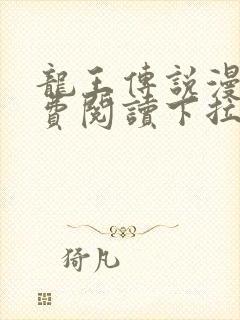 龍王傳説漫
費閱讀下拉
猗凡